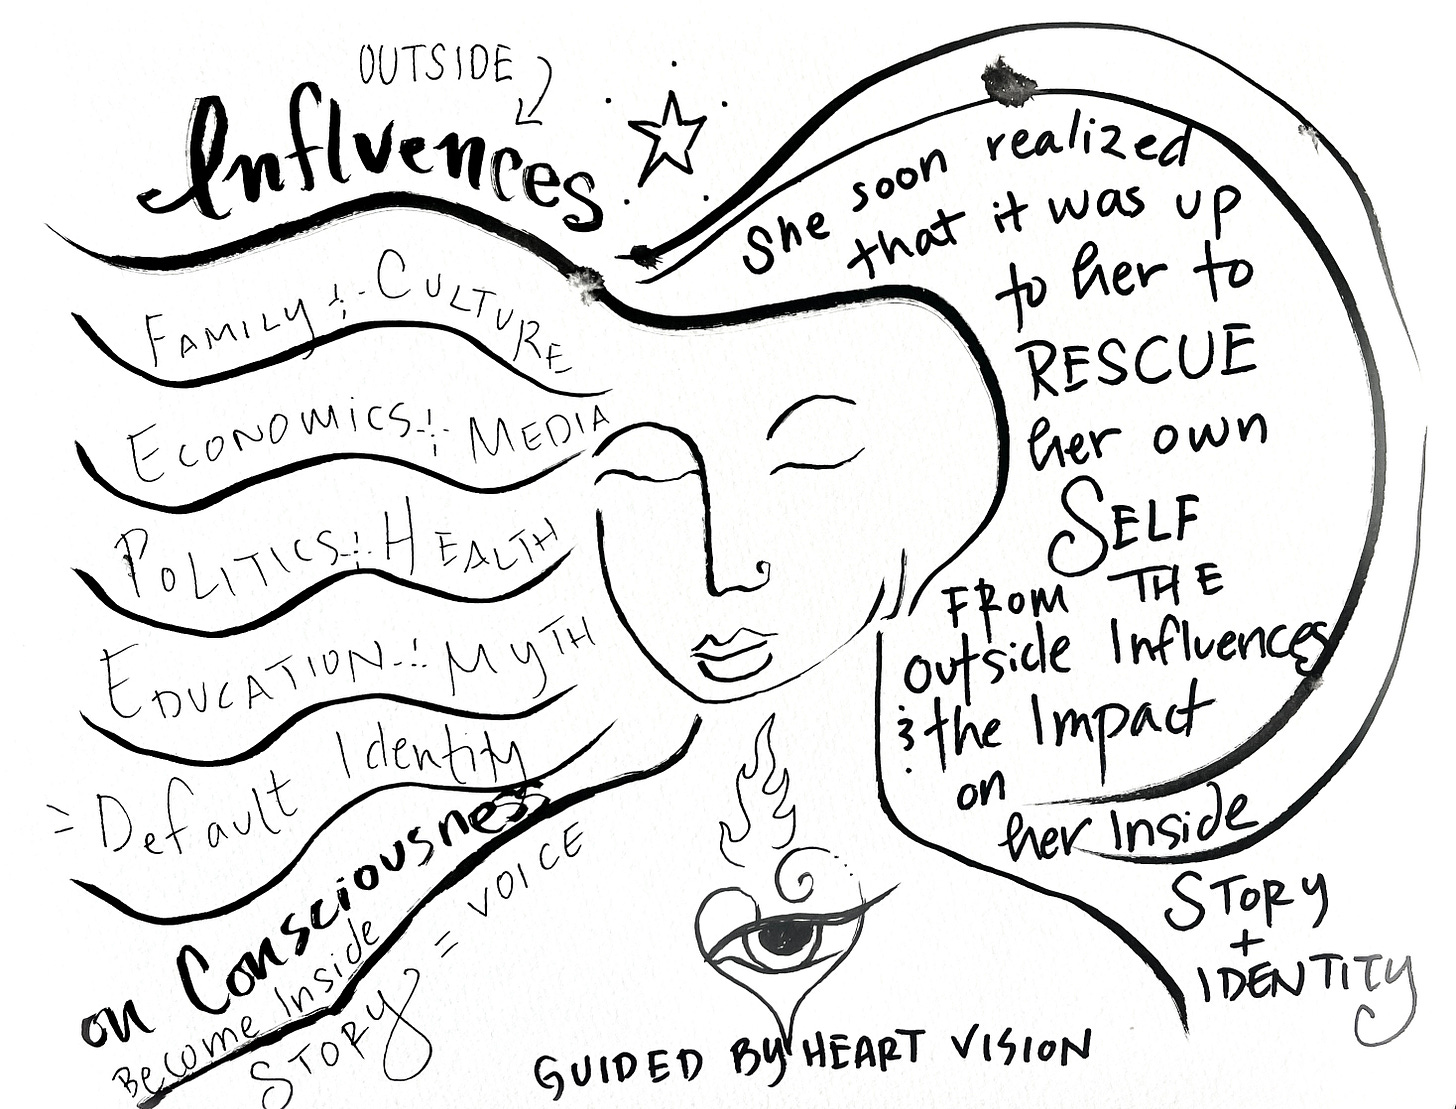 OUTSIDE
Influences
FAMILY & CULTURE
ECONOMICS & MEDIA
POLITICS & HEALTH
EDUCATION & MYTH
= Default Identity
on Consciousness
Become Inside
STORY = VOICE
She soon realized
that it was up
to her to
RESCUE
her own
SELF
FROM THE
outside Influences
& the Impact
on
her Inside
STORY
+
IDENTITY
GUIDED BY HEART VISION